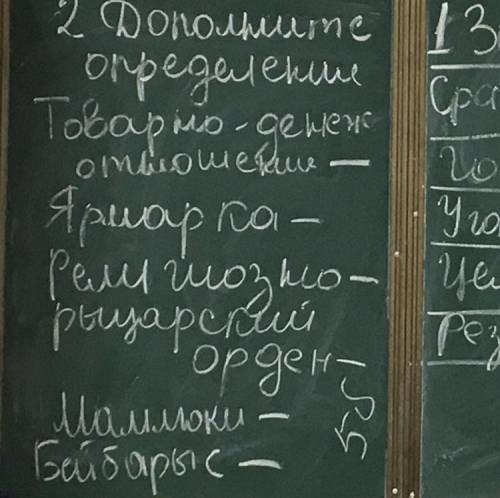 2 Дополните
определение
Товарно-денеж
отношения —
Ярмарка —
Религиозно —
рыцарский
орден —
Мамлюки —
Бейбарыс —
5б
1 З
Сра
Уго
Цел
Рез